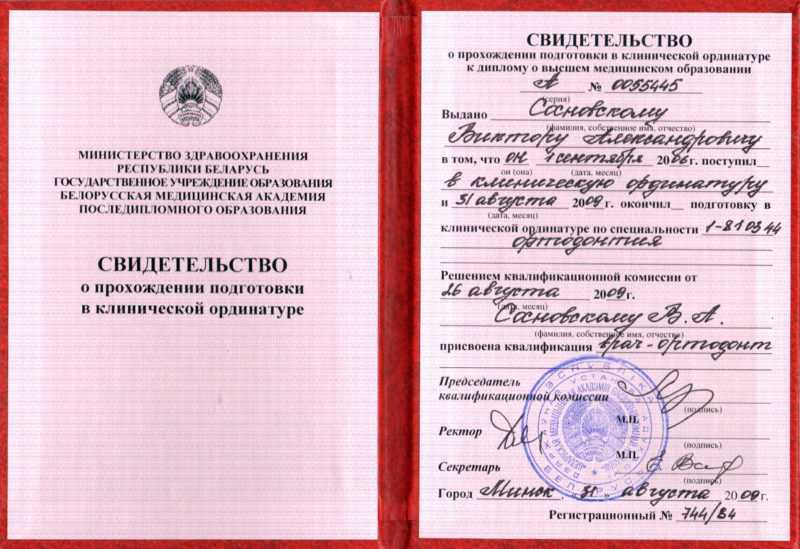 МИНИСТЕРСТВО ЗДРАВООХРАНЕНИЯ
РЕСПУБЛИКИ БЕЛАРУСЬ
ГОСУДАРСТВЕННОЕ УЧРЕЖДЕНИЕ ОБРАЗОВАНИЯ
БЕЛОРУССКАЯ МЕДИЦИНСКАЯ АКАДЕМИЯ
ПОСЛЕДИПЛОМНОГО ОБРАЗОВАНИЯ
СВИДЕТЕЛЬСТВО
о прохождении подготовки
в клинической ординатуре
СВИДЕТЕЛЬСТВО
о прохождении подготовки в клинической ординатуре
к диплому о высшем медицинском образовании
А № 0055445
(серия)
Выдано Сосновскому
(фамилия, собственное имя, отчество)
Виктору Александровичу
в том, что он 1 сентября 2006г. поступил
он (она) (дата, месяц)
в клиническую ординатуру
и 31 августа 2009г. окончил подготовку в
(дата, месяц)
клинической ординатуре по специальности 1-81 03 44
ортодонтия
Решением квалификационной комиссии от
26 августа 2009г.
(дата, месяц)
Сосновскому В. А.
(фамилия, собственное имя, отчество)
присвоена квалификация врач-ортодонт
Председатель
квалификационной комиссии
(подпись)
М.П.
Ректор
(подпись)
М.П.
Секретарь
(подпись)
Город Минск, 31 августа 2009г.
Регистрационный № 744/84